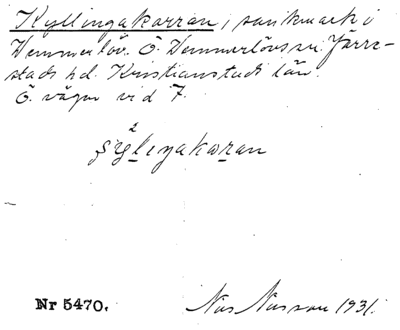 Kyllingakarran, sankmark i
Hemmerlöv. Ö. Hemmerlövs sn. Järre-
stads hd. Kristianstads län.
Ö. vägen vid 7.
ʂyliŋakaran
Nr 5470.
Nils Nilsson 1931.